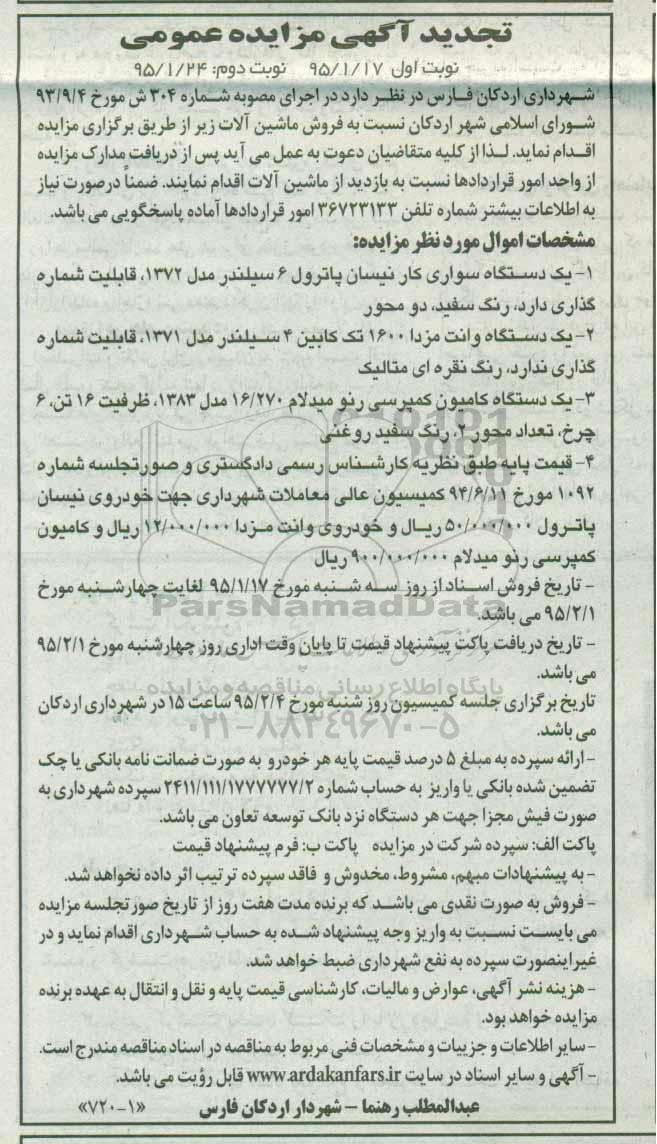 تجدید آگهی مزایده عمومی
نوبت اول ۹۵/۱/۱۷ نوبت دوم: ۹۵/۱/۲۴
شهرداری اردکان فارس در نظر دارد در اجرای مصوبه شماره ۳۰۴ ش مورخ ۹۳/۹/۴
شورای اسلامی شهر اردکان نسبت به فروش ماشین آلات زیر از طریق برگزاری مزایده
اقدام نماید. لذا از کلیه متقاضیان دعوت به عمل می آید پس از دریافت مدارک مزایده
از واحد امور قراردادها نسبت به بازدید از ماشین آلات اقدام نمایند. ضمناً درصورت نیاز
به اطلاعات بیشتر شماره تلفن ۳۶۷۲۳۱۳۳ امور قراردادها آماده پاسخگویی می باشد.
مشخصات اموال مورد نظر مزایده:
۱- یک دستگاه سواری کار نیسان پاترول ۶ سیلندر مدل ۱۳۷۲، قابلیت شماره
گذاری دارد، رنگ سفید، دو محور
۲- یک دستگاه وانت مزدا ۱۶۰۰ تک کابین ۴ سیلندر مدل ۱۳۷۱، قابلیت شماره
گذاری ندارد، رنگ نقره ای متالیک
۳- یک دستگاه کامیون کمپرسی رنو میدلام ۱۶/۲۷۰ مدل ۱۳۸۳، ظرفیت ۱۶ تن، ۶
چرخ، تعداد محور ۲، رنگ سفید روغنی
۴- قیمت پایه طبق نظریه کارشناس رسمی دادگستری و صورتجلسه شماره
۱۰۹۲ مورخ ۹۴/۶/۱۱ کمیسیون عالی معاملات شهرداری جهت خودروی نیسان
پاترول ۵۰/۰۰۰/۰۰۰ ریال و خودروی وانت مزدا ۱۲/۰۰۰/۰۰۰ ریال و کامیون
کمپرسی رنو میدلام ۹۰۰/۰۰۰/۰۰۰ ریال
- تاریخ فروش اسناد از روز سه شنبه مورخ ۹۵/۱/۱۷ لغایت چهارشنبه مورخ
۹۵/۲/۱ می باشد.
ParsNamadData
- تاریخ دریافت پاکت پیشنهاد قیمت تا پایان وقت اداری روز چهارشنبه مورخ ۹۵/۲/۱
می باشد.
پایگاه اطلاع رسانی مناقصه و مزایده
تاریخ برگزاری جلسه کمیسیون روز شنبه مورخ ۹۵/۲/۴ ساعت ۱۵ در شهرداری اردکان
می باشد.
۰۲۱-۸۸۳۴۹۶۷۰-۵
- ارائه سپرده به مبلغ ۵ درصد قیمت پایه هر خودرو به صورت ضمانت نامه بانکی یا چک
تضمین شده بانکی یا واریز به حساب شماره ۲۴۱۱/۱۱۱/۱۷۷۷۷۷۷/۲ سپرده شهرداری به
صورت فیش مجزا جهت هر دستگاه نزد بانک توسعه تعاون می باشد.
پاکت الف: سپرده شرکت در مزایده پاکت ب: فرم پیشنهاد قیمت
- به پیشنهادات مبهم، مشروط، مخدوش و فاقد سپرده ترتیب اثر داده نخواهد شد.
- فروش به صورت نقدی می باشد که برنده مدت هفت روز از تاریخ صورتجلسه مزایده
می بایست نسبت به واریز وجه پیشنهاد شده به حساب شهرداری اقدام نماید و در
غیراینصورت سپرده به نفع شهرداری ضبط خواهد شد.
- هزینه نشر آگهی، عوارض و مالیات، کارشناسی قیمت پایه و نقل و انتقال به عهده برنده
مزایده خواهد بود.
- سایر اطلاعات و جزییات و مشخصات فنی مربوط به مناقصه در اسناد مناقصه مندرج است.
- آگهی و سایر اسناد در سایت www.ardakanfars.ir قابل رؤیت می باشد.
عبدالمطلب رهنما – شهردار اردکان فارس «۷۲۰-۱»